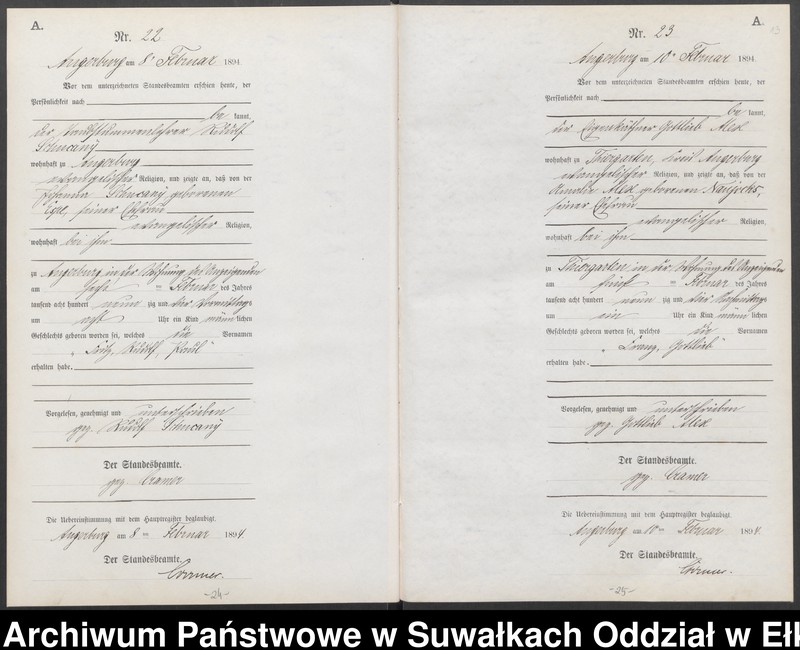 A.
Nr. 22
Angerburg am 8 Februar 1894
Vor dem unterzeichneten Standesbeamten erschien heute, der
Persönlichkeit nach
be kannt,
der Rudolf
wohnhaft zu Angerburg
evangelischer Religion, und zeigte an, daß von der
Johanna geborenen
seiner Ehefrau
evangelischer Religion,
wohnhaft bei ihm
zu Angerburg in der Wohnung des Anzeigenden
am Februar des Jahres
tausend acht hundert neun zig und vier Vormittags
um acht Uhr ein Kind männ lichen
Geschlechts geboren worden sei, welches die Vornamen
Fritz, Rudolf, Paul
erhalten habe.
Vorgelesen, genehmigt und unterschrieben
gez. Rudolf
Der Standesbeamte.
gez. Cramer
Die Uebereinstimmung mit dem Hauptregister beglaubigt.
Angerburg am 8 ten Februar 1894
Der Standesbeamte.
Cramer.
-24-
A.
Nr. 23
Angerburg am 10 Februar 1894
Vor dem unterzeichneten Standesbeamten erschien heute, der
Persönlichkeit nach
be kannt,
der Eigenkäthner Gottlieb Alex
wohnhaft zu Thiergarten, Kreis Angerburg
evangelischer Religion, und zeigte an, daß von der
Amalie Alex geborenen
seiner Ehefrau
evangelischer Religion,
wohnhaft bei ihm
zu Thiergarten in der Wohnung des Anzeigenden
am Februar des Jahres
tausend acht hundert neun zig und vier Nachmittags
um ein Uhr ein Kind männ lichen
Geschlechts geboren worden sei, welches die Vornamen
Franz, Gottlieb
erhalten habe.
Vorgelesen, genehmigt und unterschrieben
gez. Gottlieb Alex
Der Standesbeamte.
gez. Cramer
Die Uebereinstimmung mit dem Hauptregister beglaubigt.
Angerburg am 10 ten Februar 1894.
Der Standesbeamte.
Cramer.
-25-
Archiwum Państwowe w Suwałkach Oddział w Ełk